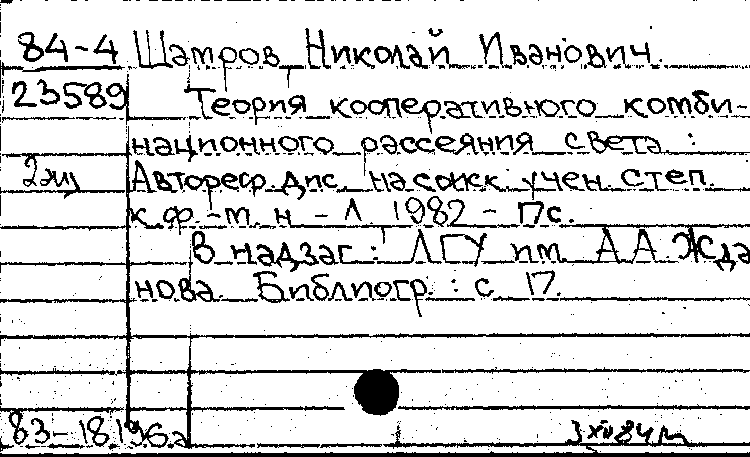 84-4 Шатров Николай Иванович.
23589 Теория кооперативного комби-
национного рассеяния света :
2 экз Автореф. дис. на соиск. учен. степ.
к. ф.-м. н. - Л. 1982 - 17 с.
В надзаг : ЛГУ им. А А Жда
нова. Библиогр. : с 17.
83-18196а